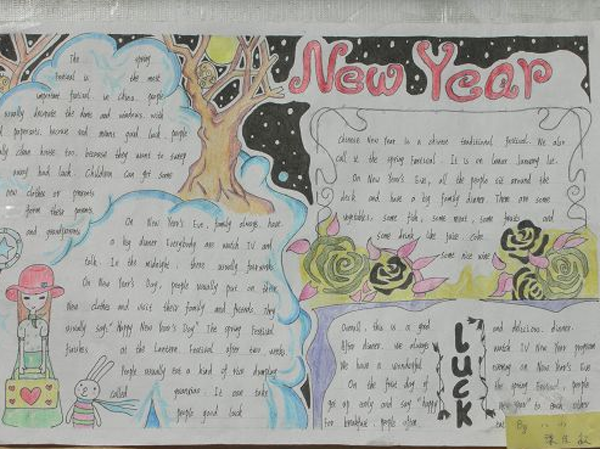 The spring
festival is the most
important festival in China. people
usually decorate the doors and windows with
papercuts. because red means good luck. people
clean house too. because they want to sweep
away bad luck. Children can get some
new clothes or presents
from their parents
and grandparents.
On New Year's Eve, family always have
a big dinner. Everybody are watch TV and
talk. In the midnight, there usually fireworks.
On New Year's Day, people usually put on their
New clothes and visit their family and friends. They
usually says "Happy New Year's Day". The spring Festival
finishes at the Lantern Festival after two weeks.
People usually eat a kind of rice dumpling
called yuanxiao. It can take
people good luck
New Year
Chinese New Year is a chinese traditional festival. We also
call it the spring Festival. It is on lunar January 1st.
On New Year's Eve, all the people sit around the
desk and have a big family dinner. There are some
vegetables, some fish, some meat, some fruits and
some drink like juice coke.
some rice wine
Overall, this is a good and delicious dinner.
After dinner, we always watch TV New Year program
We have a wonderful evening on New Year's Eve
On the first day of the spring Festival, people
get up early and say "happy new year" to each other
For breakfast, people often eat
luck
By 八